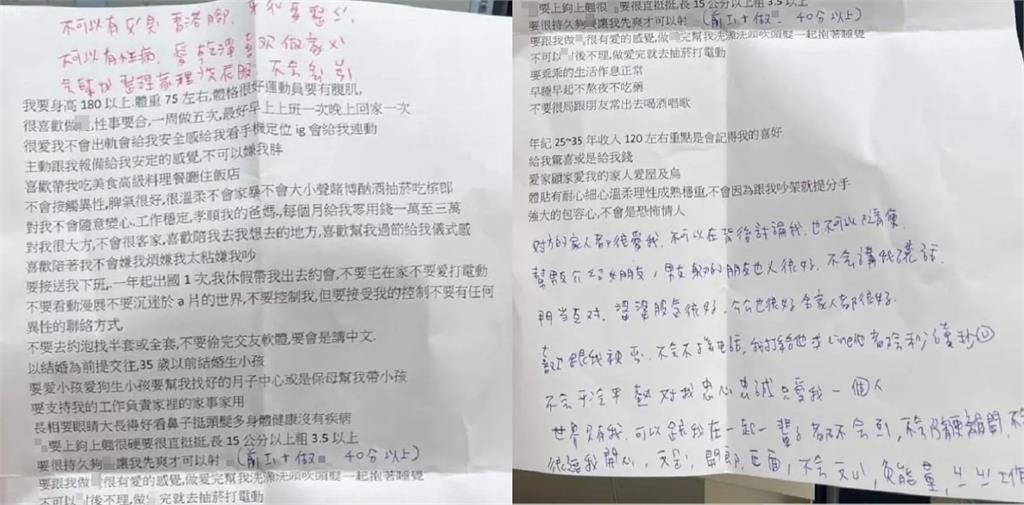 不可以有口臭 香港腳. 牙齒要整齊
不可以有性病. 愛乾淨 喜歡做家事
會幫忙整理家裡 洗衣服. 不會劈
我要身高 180 以上.體重 75 左右,體格很好運動員要有腹肌,
很喜歡做,性事要合,一周做五次,最好早上上班一次晚上回家一次
很愛我不會出軌會給我安全感給我看手機定位 ig 會給我連動
主動跟我報備給我安定的感覺,不可以嫌我胖
喜歡帶我吃美食高級料理餐廳住飯店
不會接觸異性,脾氣很好,很溫柔不會家暴不會大小聲賭博酗酒抽菸吃檳郎
對我不會隨意變心,.工作穩定,孝順我的爸媽.,每個月給我零用錢一萬至三萬
對我很大方,不會很客家,喜歡陪我去我想去的地方,喜歡幫我過節給我儀式感
喜歡陪著我不會嫌我煩嫌我太粘嫌我吵
要接送我下班,.一年起出國 1 次,我休假帶我出去約會,不要宅在家不要愛打電動
不要看動漫展不要沉迷於 a 片的世界,不要控制我,但要接受我的控制不要有任何
異性的聯絡方式,
不要去約泡找半套或全套,不要偷完交友軟體,要會是講中文.
以結婚為前提交往,35 歲以前結婚生小孩
要愛小孩愛狗生小孩要幫我找好的月子中心或是保母幫我帶小孩
要支持我的工作負責家裡的家事家用
長相要眼睛大長得好看鼻子挺頭髮多身體健康沒有疾病
要上鉤上翹很硬要很直挺挺,長 15 公分以上粗 3.5 以上
要很持久夠讓我先爽才可以射 (前戲+做 40分以上)
要跟我做很有愛的感覺,做愛完幫我洗澡洗頭吹頭髮一起抱著睡覺
不可以後不理,做完就去抽菸打電動
要上鉤上翹很要很直挺挺,長 15 公分以上粗 3.5 以上
要很持久夠讓我先爽才可以射 (前戲+做 40分以上)
要跟我做,很有愛的感覺,做完幫我洗澡洗頭吹頭髮一起抱著睡覺
不可以後不理,做愛完就去抽菸打電動
要乖乖的生活作息正常
早睡早起不熬夜不吃藥
不要很局跟朋友常出去喝酒唱歌
年紀 25~35 年收人 120 左右重點是會記得我的喜好
給我驚喜或是給我錢
愛家顧家愛我的家人愛屋及烏
體貼有耐心細心溫柔理性成熟穩重,不會因為跟我吵架就提分手
強大的包容心,不會是恐怖情人
對方的家人都很愛我. 不可以在背後討論我. 也不可以隨便
幫男友介紹女朋友, 男友身的朋友也人很好. 不會講我壞話.
門當互對. 婆婆脾氣很好. 公公也很好 全家人都很好.
喜歡跟我視訊. 不會不接電話, 我打給他 or line他都會秒讀秒回
不會平淡平 熱 對我忠心 忠誠 只愛我一個人
世界只有我. 可以跟我在一起一輩子都不會, 不會隨便離開
很逗我開心, 天, 開朗, 正面, 不會, 負能量,